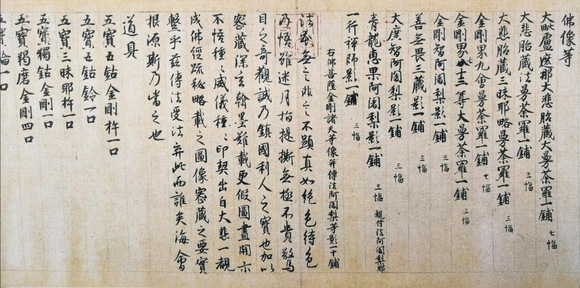 佛像等
大毗盧遮那大悲胎藏大曼荼羅一鋪 七幅
大悲胎藏法曼荼羅一鋪 三幅
大悲胎藏三昧耶略曼荼羅一鋪 三幅
金剛界九會曼荼羅一鋪 七幅
金剛界八十一尊大曼荼羅一鋪 三幅
金剛智阿闍梨影一鋪 三幅
善無畏三藏影一鋪 三幅
大廣智阿闍梨影一鋪 三幅
青龍惠果阿闍梨影一鋪 三幅
一行禪師影一鋪 三幅
右佛菩薩金剛諸天等像并傳法阿闍梨等影一十鋪
法本無言非言不顯真如絶色待色
乃悟雖迷月指提撕無極不貴驚
目之奇觀誠乃鎮國利人之寶也加以
密藏深玄翰墨難載更假圖畫開示
不悟種々威儀種々印契出自大悲一覩
成佛經疏秘略載之圖像密藏之要實
繫乎茲傳法受法弃此而誰矣海會
根源斯乃當之也
道具
五寶五鈷金剛杵一口
五寶五鈷鈴一口
五寶三昧耶杵一口
五寶獨鈷金剛一口
五寶羯磨金剛四口
五寶輪一口